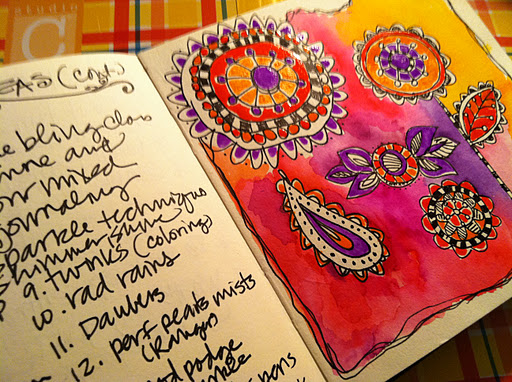 studio
C
EAS (cont.)
bling class
mine and
mixed
journaling
sparkle techniques
shimmer shine
9. twinks (coloring)
10. rad rains
11. Daubers
12. perf pearls mists
(Ranger)
podge
pens